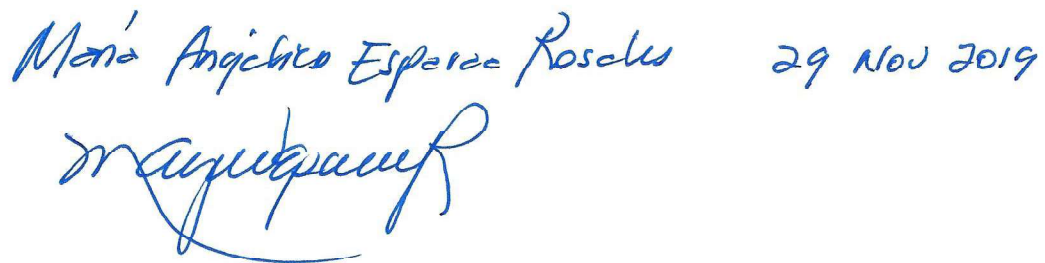 María Angélica Esparza Rosales 29 Nov 2019